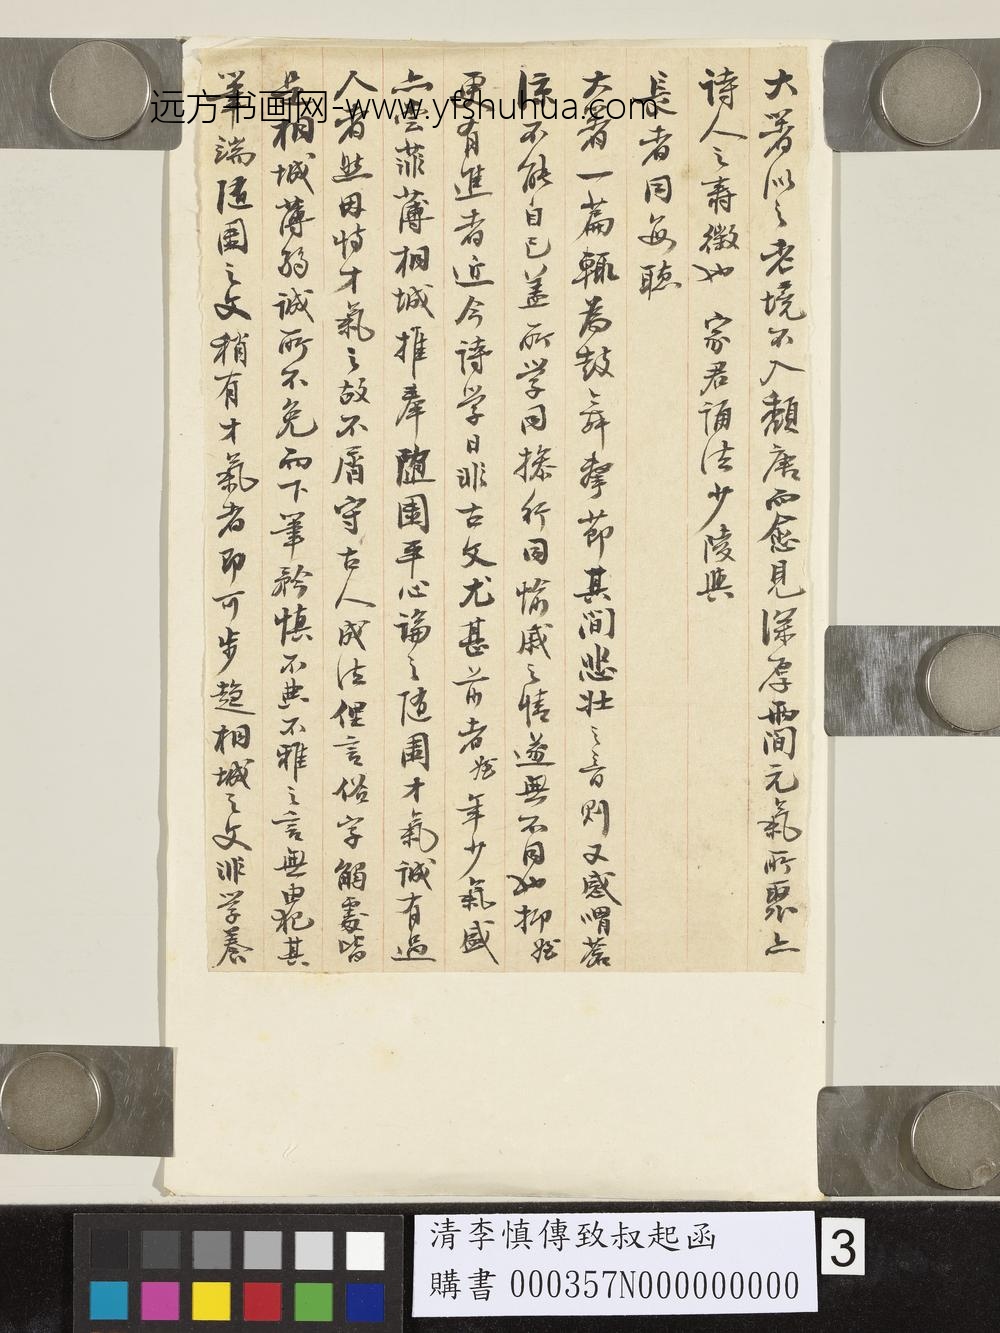 大著似之老境不入頹唐而愈見深厚兩間元氣所聚亦
詩人之壽徵也 家君誦法少陵與
長者同每聽
大著一篇輒為鼓舞擊節其間悲壯之音則又感喟蒼
涼不能自已蓋所學同操行同愉戚之情遂無不同也抑
更有進者近今詩學日非古文尤甚前者 年少氣盛
亦嘗菲薄桐城推奉隨園平心論之隨園才氣誠有過
人者然因恃才氣之故不屑守古人成法俚言俗字觸處皆
是桐城薄弱誠所不免而下筆矜慎不典不雅之言無由犯其
筆端隨園之文稍有才氣者即可步趨桐城之文非學養
远方书画网-www.yfshuhua.com
清李慎傳致叔起函
購書 000357N000000000
3